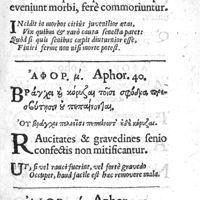 eveniunt morbi, ferè commoriuntur.
INcidit in morbos citiùs juvenilior ætas,
Vix quibus & rarò cauta senecta patet:
Quòd si quis senibus cupit diuturnior esse,
Finiri ferme non nisi morte potest.
ἈΦΟΡ. μ. Aphor. 40.
Βράγχοι ἢ κόρυζαι τοῖσι σφόδρα
πρεσβύτῃσιν
RAucitates & gravedines senio
confectis non mitificantur.
UT, si vel rauci fuerint, vel fortè gravedo
Occupet, haud facile est hæc removere mala.